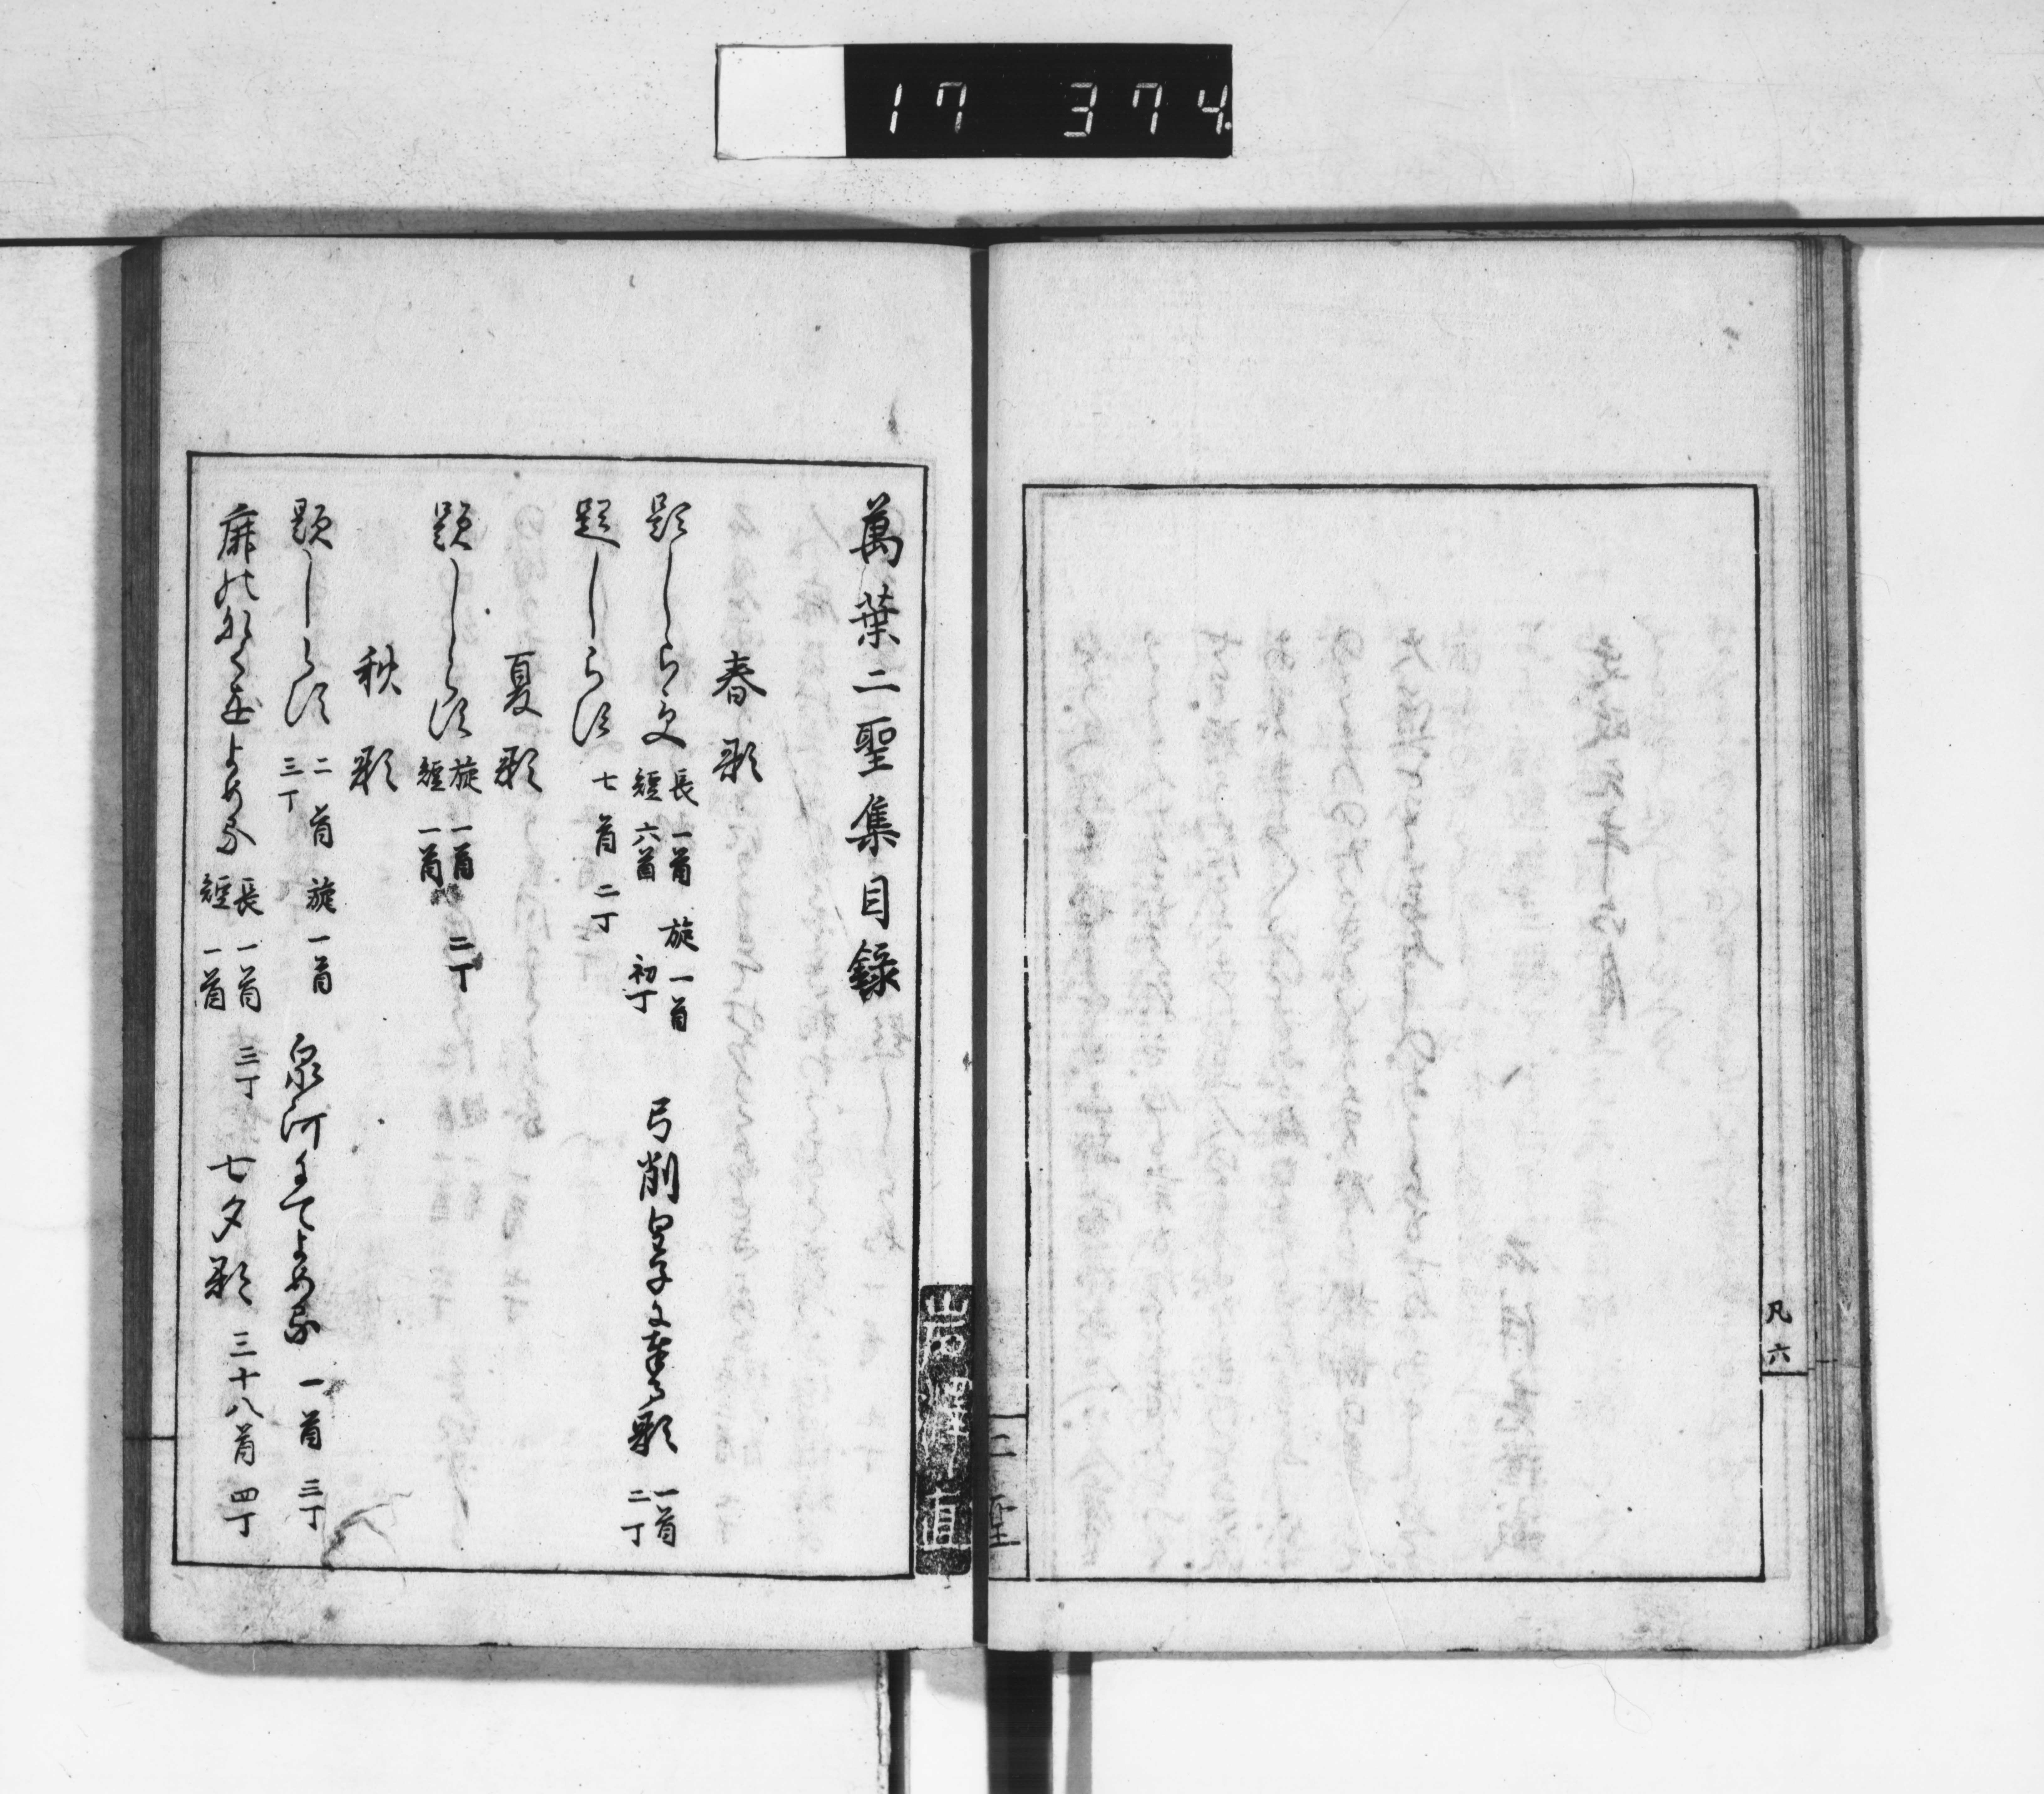 17 374
凡六
二聖
萬葉二聖集目録
春歌
題しらす 長一首 旋一首 短六首 初丁 弓削皇子に奉る歌 一首 二丁
題しらす 七首 二丁
夏歌
題しらす 旋一首 短一首 二丁
秋歌
題しらす 二首 旋一首 三丁 泉河にてよめる 一首 三丁
よめる 長一首 短一首 三丁 七夕歌 三十八首 四丁